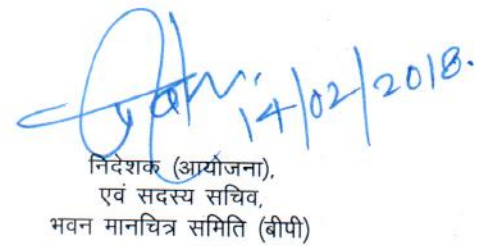 14/02/2018.
निदेशक (आयोजना),
एवं सदस्य सचिव,
भवन मानचित्र समिति (बीपी)